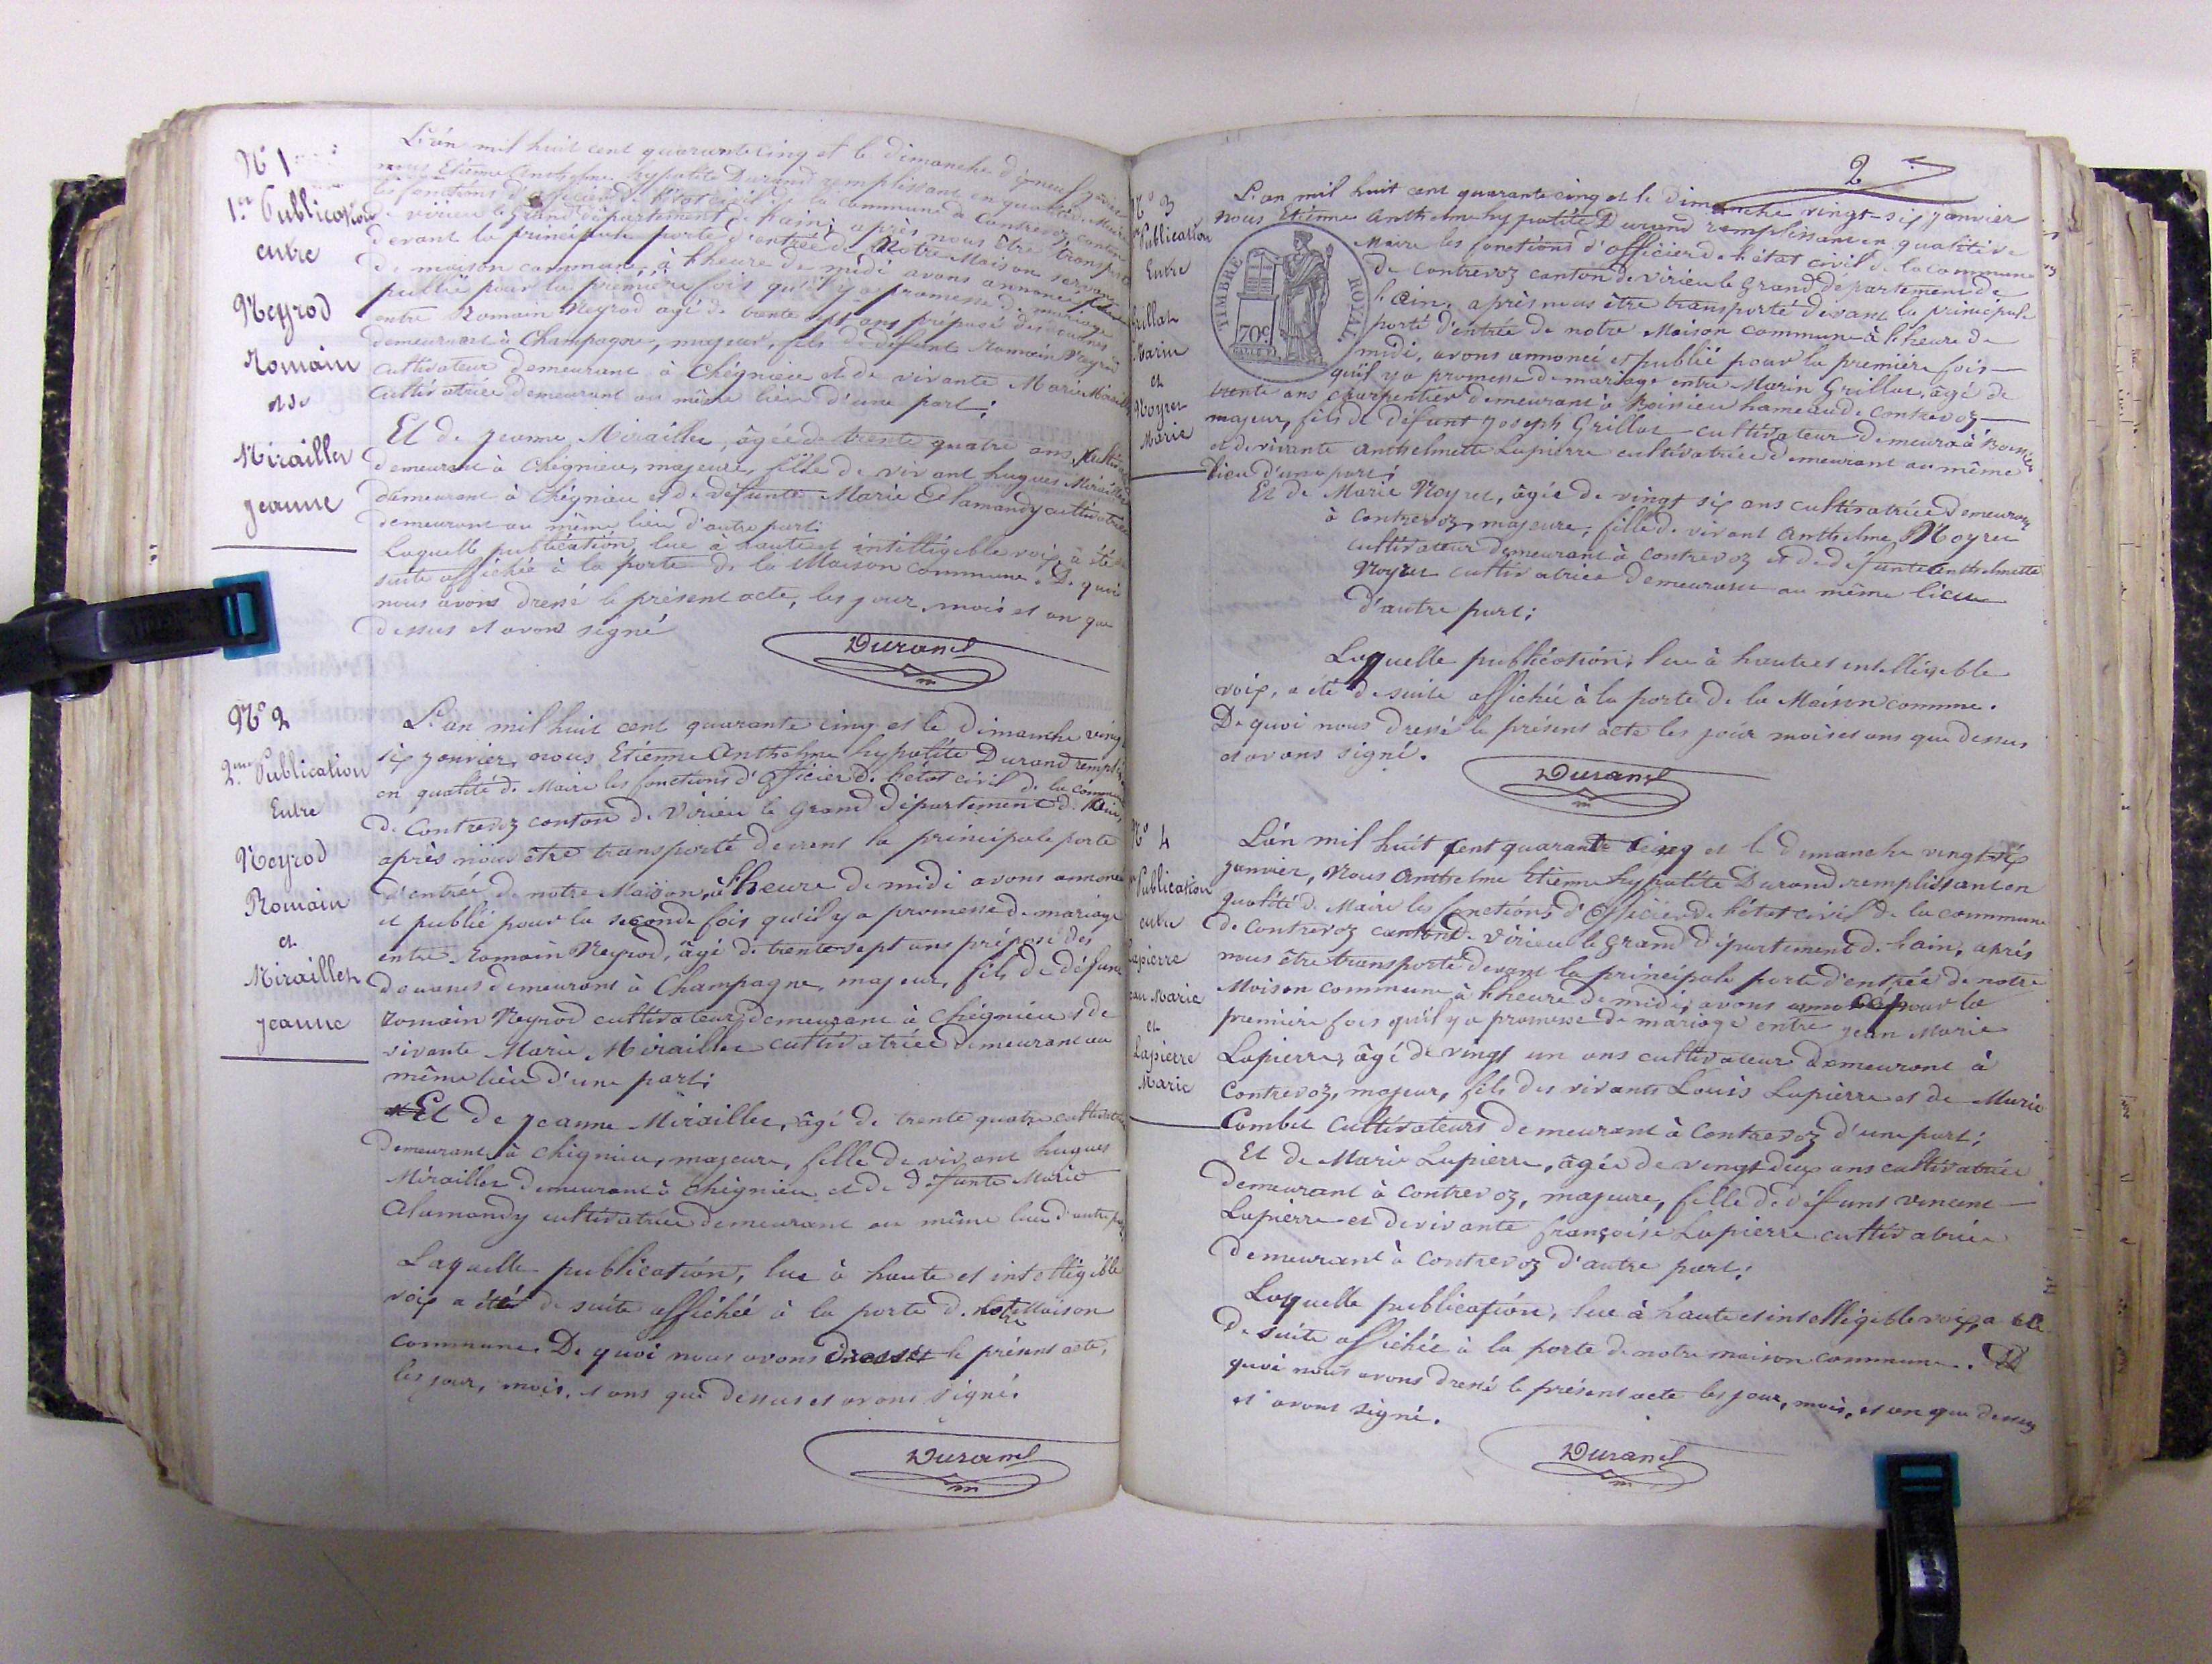 N° 1
1ère Publication
entre
Neyrod
Romain
et de
Miraillet
jeanne
L'an mil huit cent quarante cinq et le dimanche dixneuf
nous Etienne Anthelme hypolite Durand remplissant en qualité de Maire
les fonctions d'officier de l'état civil de la commune de Contrevoz canton
de virieu le Grand département de l'ain; après nous être transporté
devant la principale porte d'entrée de Notre Maison servant
de maison commune, à l'heure de midi avons annoncé et
publié pour la première fois qu'il y a promesse de mariage
entre Romain Neyrod agé de trente sept ans préposé des douanes
demeurant à Champagne, majeur, fils de défunt Romain Neyrod
cultivateur demeurant à Chégnieu et de vivante Marie Miraillet
cultivatrice demeurant au même lieu d'une part;
Et de jeanne Miraillet, âgée de trente quatre ans, cultivatrice
demeurant à Chégnieu, majeure, fille de vivant hugues Miraillet
demeurant à Chégnieu et de défunte Marie Alamandy cultivatrice
demeurant au même lieu d'autre part.
Laquelle publication, lue à haute et intelligible voix, a été de
suite affichée à la porte de la Maison commune. De quoi
nous avons dressé le présent acte, les jour, mois et an que
dessus et avons signé
Durand
N° 2
2ème Publication
Entre
Neyrod
Romain
et
Miraillet
jeanne
L'an mil huit cent quarante cinq et le Dimanche vingt
six janvier, nous Etienne Anthelme hypolite Durand remplissant
en qualité de Maire les fonctions d'officier de l'état civil de la commune
de Contrevoz canton de Virieu le Grand département de l'ain,
après nous être transporté devant la principale porte
d'entrée de notre Maison, à l'heure de midi avons annoncé
et publié pour la seconde fois qu'il y a promesse de mariage
entre Romain Neyrod, âgé de trente-sept ans préposé des
douanes demeurant à Champagne, majeur, fils de défunt
Romain Neyrod cultivateur demeurant à Chégnieu et de
vivante Marie Miraillet cultivatrice demeurant au
même lieu d'une part;
Et de jeanne Miraillet, âgé de trente quatre cultivatrice
demeurant à Chégnieu, majeure, fille de vivant hugues
Miraillet demeurant à Chégnieu et de défunte Marie
Alamandy cultivatrice demeurant au même lieu d'autre part
Laquelle publication, lue à haute et intelligible
voix a été de suite affichée à la porte de notre Maison
commune. De quoi nous avons dressé le présent acte,
les jour, mois, et ans que dessus et avons signé.
Durand
2
N° 3
Publication
Entre
Grillat
Marin
et
Noyret
Marie
TIMBRE ROYAL
70c
L'an mil huit cent quarante cinq et le Dimanche vingt-six janvier
nous Etienne Anthelme hypolite Durand remplissant en qualité de
Maire les fonctions d'officier de l'état civil de la commune
de Contrevoz canton de virieu le Grand département de
l'ain, après nous être transporté devant la principale
porte d'entrée de notre Maison commune à l'heure de
midi, avons annoncé et publié pour la première fois
qu'il y a promesse de mariage entre Marin Grillat, âgé de
trente ans charpentier demeurant à Boissieu hameau de Contrevoz
majeur, fils de défunt joseph Grillat cultivateur demeura à Boissieu
et de vivante Anthelmette Lapierre cultivatrice demeurant au même
lieu d'une part;
Et de Marie Noyret, âgée de vingt six ans cultivatrice demeurant
à Contrevoz, majeure, fille de vivant Anthelme Noyret
cultivateur demeurant à contrevoz et de défunte Anthelmette
Noyret cultivatrice demeurant au même lieu
d'autre part;
Laquelle publication, lue à haute et intelligible
voix, a été de suite affichée à la porte de la Maison commne.
De quoi nous dressé le présent acte les jour mois et ans que dessus
et avons signé.
Durand
N° 4
Publication
entre
Lapierre
jean Marie
et
Lapierre
Marie
L'an mil huit cent quarante cinq et le dimanche vingt-six
janvier, Nous Anthelme Etienne hypolite Durand remplissant en
qualité de Maire les fonctions d'officier de l'état civil de la commune
de Contrevoz canton de virieu le Grand département de l'ain, après
nous être transporté devant la principale porte d'entrée de notre
Maison commune à l'heure de midi, avons annoncé pour la
première fois qu'il y a promesse de mariage entre jean Marie
Lapierre, âgé de vingt un ans cultivateur demeurant à
Contrevoz, majeur, fils des vivants Louis Lapierre et de Marie
Combet cultivateurs demeurant à Contrevoz d'une part;
Et de Marie Lapierre, âgée de vingt deux ans cultivatrice
demeurant à Contrevoz, majeure, fille de défunt vincent
Lapierre et de vivante françoise Lapierre cultivatrice
demeurant à Contrevoz d'autre part;
Laquelle publication, lue à haute et intelligible voix, a été
de suite affichée à la porte de notre maison commune. De
quoi nous avons dressé le présent acte les jour, mois, et an que dessus
et avons signé.
Durand